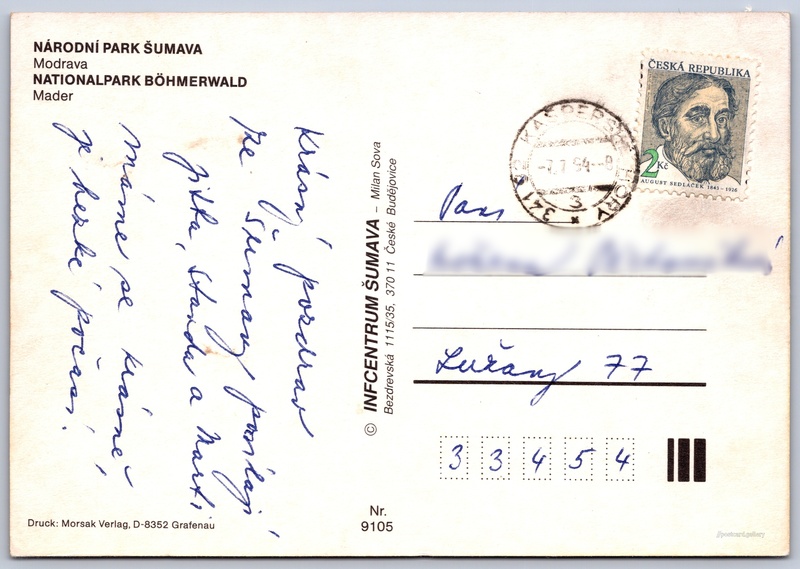 NÁRODNÍ PARK ŠUMAVA
Modrava
NATIONALPARK BÖHMERWALD
Mader
Krásný pozdrav
ze Šumavy posílají
Jitka, Standa a Marti
Máme se krásně
je hezké počasí!
Druck: Morsak Verlag, D-8352 Grafenau
© INFCENTRUM ŠUMAVA – Milan Sova
Bezdrevská 1115/35, 370 11 České Budějovice
Nr.
9105
ČESKÁ REPUBLIKA
2 Kč
AUGUST SEDLÁČEK 1843-1926
KAŠPERSKÉ HORY
-7.7.94--9
3
341 92
Paní
Lužany 77
33454
postcard.gallery